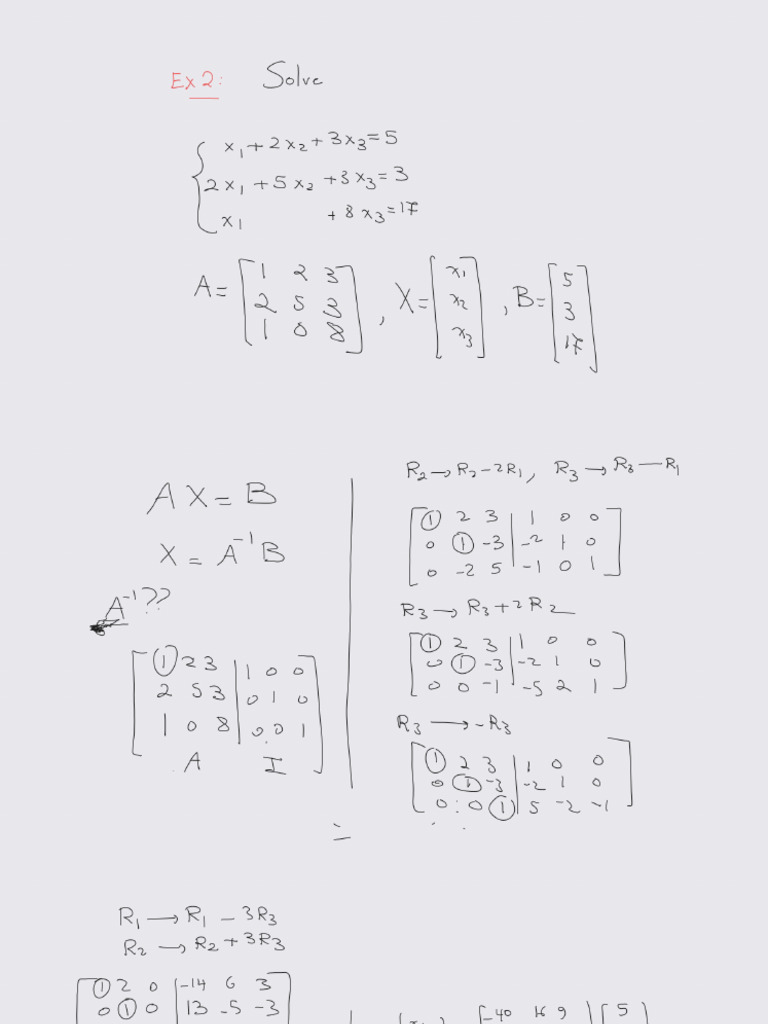 Ex 2: Solve
x1 + 2x2 + 3x3 = 5
2x1 + 5x2 + 3x3 = 3
x1 + 8x3 = 17
A = [1 2 3; 2 5 3; 1 0 8], X = [x1; x2; x3], B = [5; 3; 17]
AX = B
X = A^-1 B
A^-1 ??
[1 2 3 | 1 0 0
2 5 3 | 0 1 0
1 0 8 | 0 0 1]
A I
R2 → R2 - 2R1, R3 → R3 - R1
[1 2 3 | 1 0 0
0 1 -3 | -2 1 0
0 -2 5 | -1 0 1]
R3 → R3 + 2R2
[1 2 3 | 1 0 0
0 1 -3 | -2 1 0
0 0 -1 | -5 2 1]
R3 → -R3
[1 2 3 | 1 0 0
0 1 -3 | -2 1 0
0 0 1 | 5 -2 -1]
=
R1 → R1 - 3R3
R2 → R2 + 3R3
[1 2 0 | -14 6 3
0 1 0 | 13 -5 -3
[-40 16 9] [5